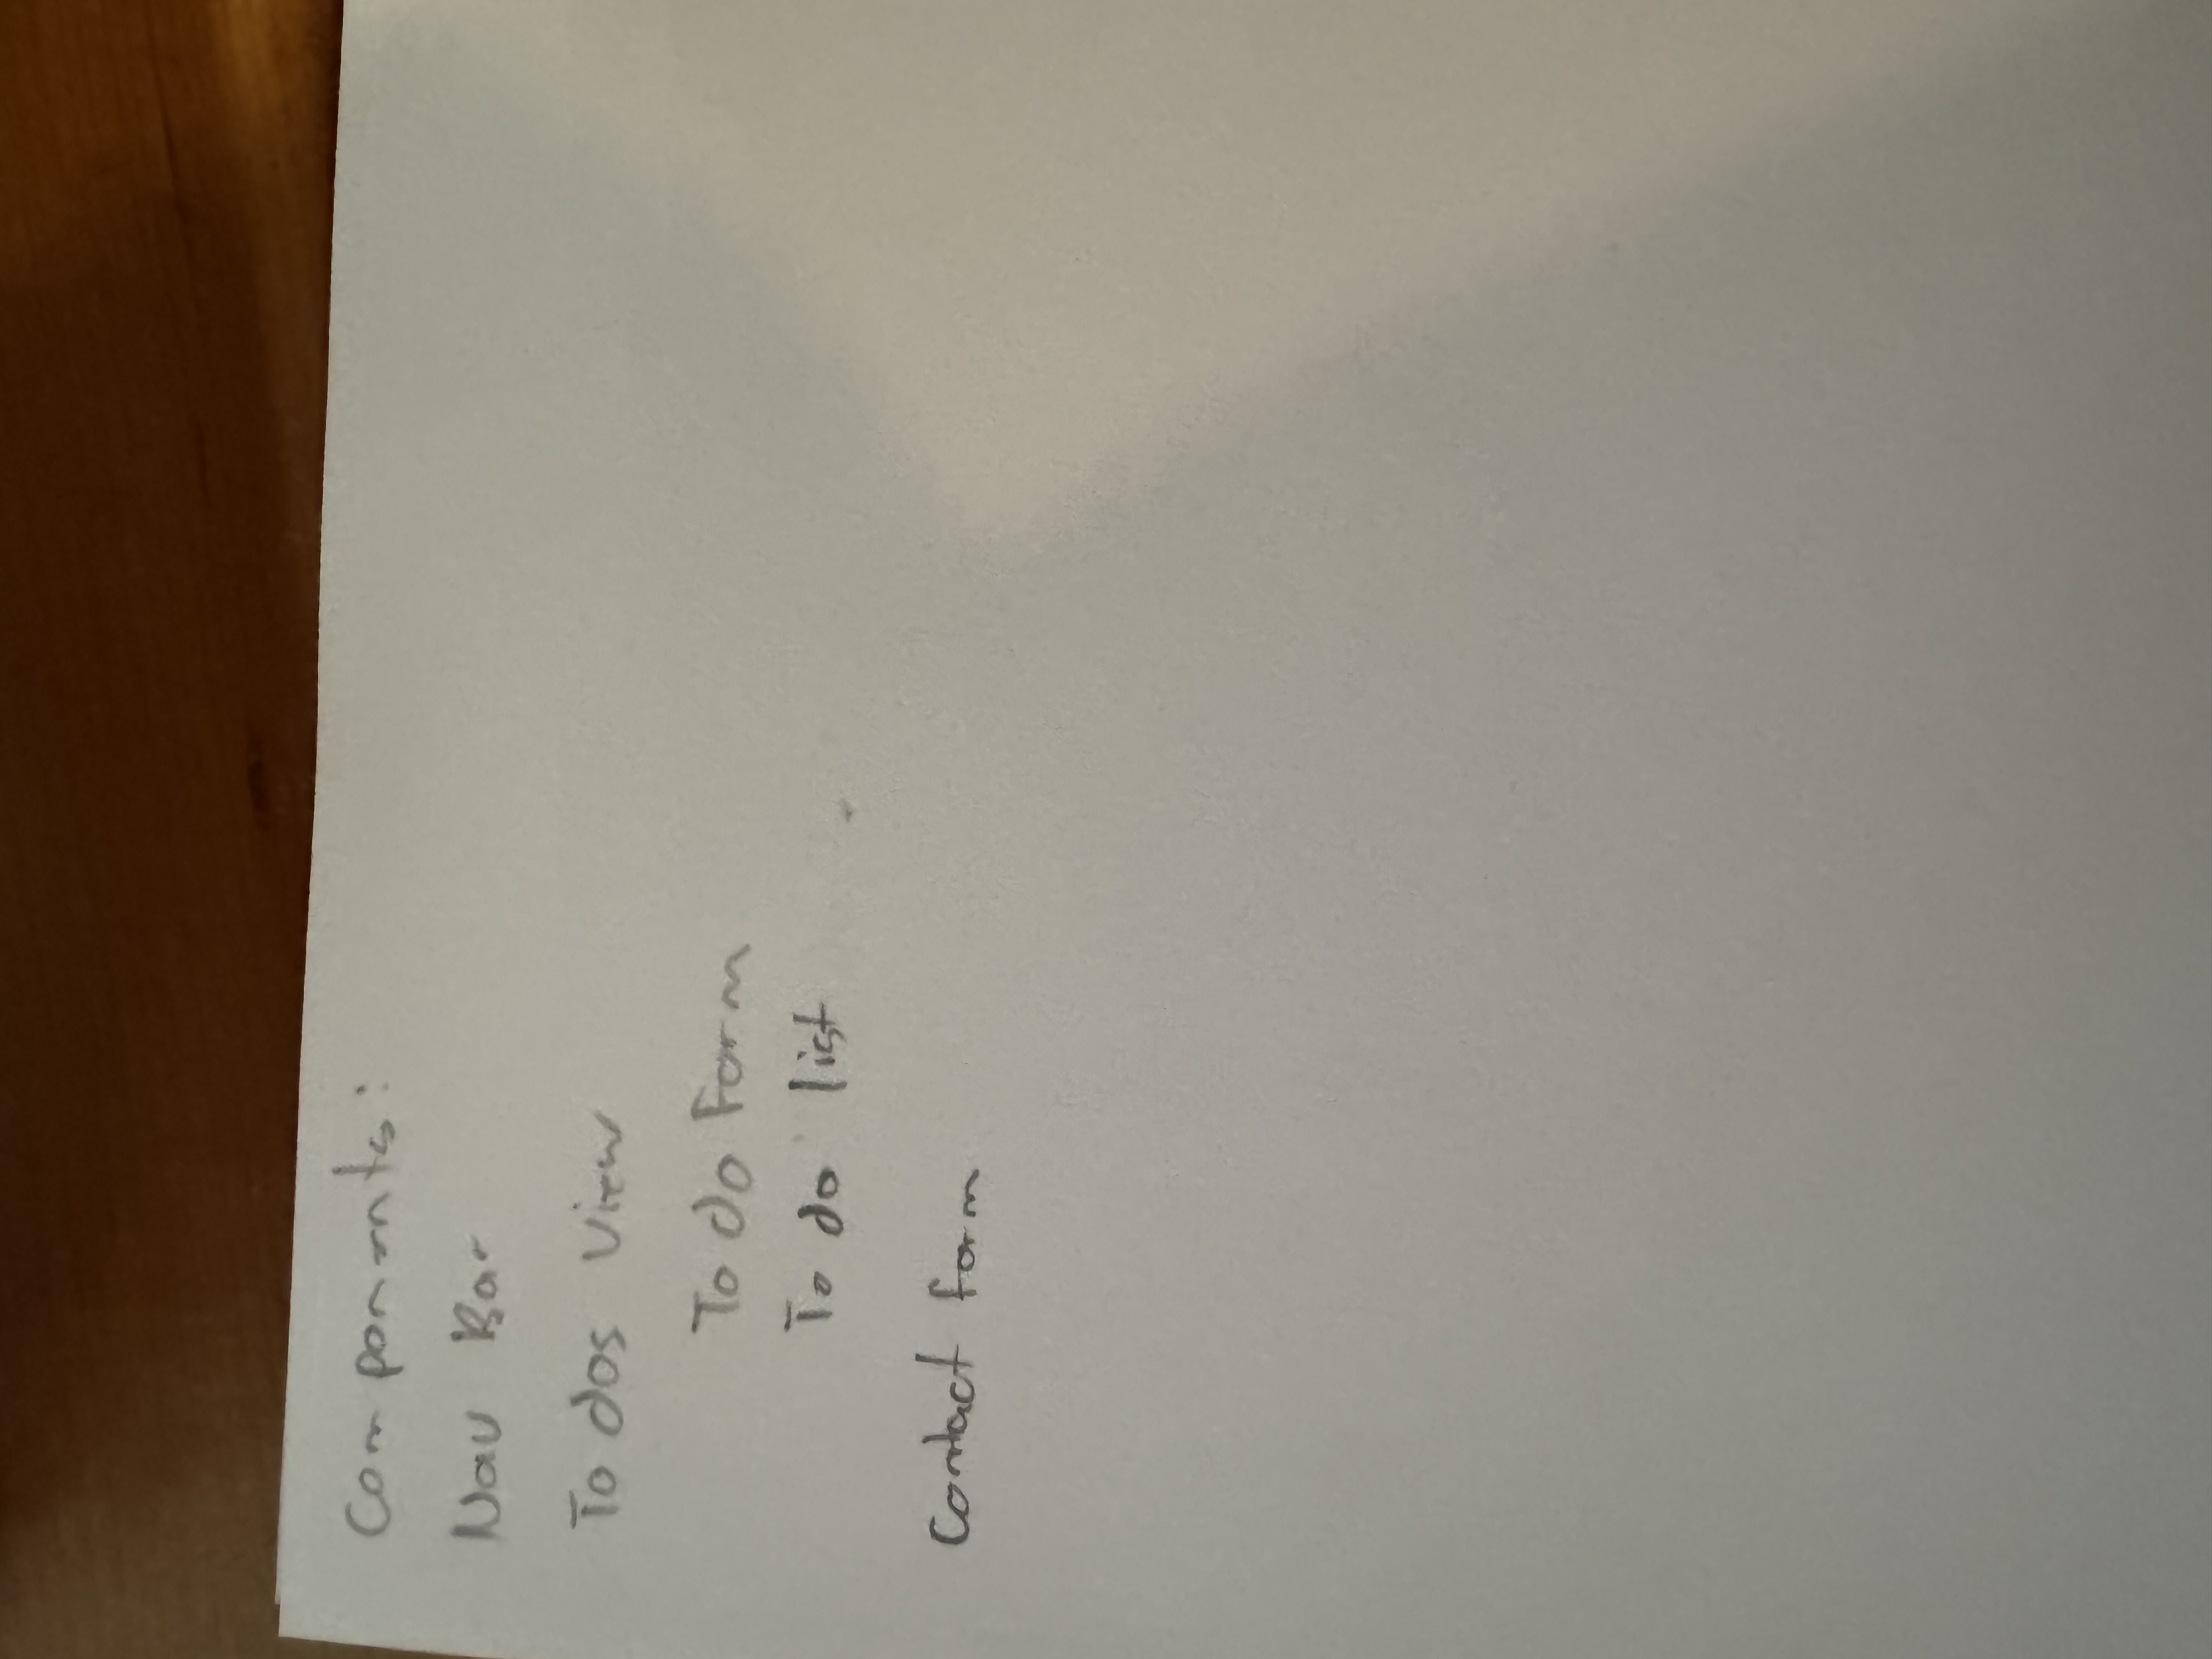 Components:
Nav Bar
To dos View
To do Form
To do list
Contact form